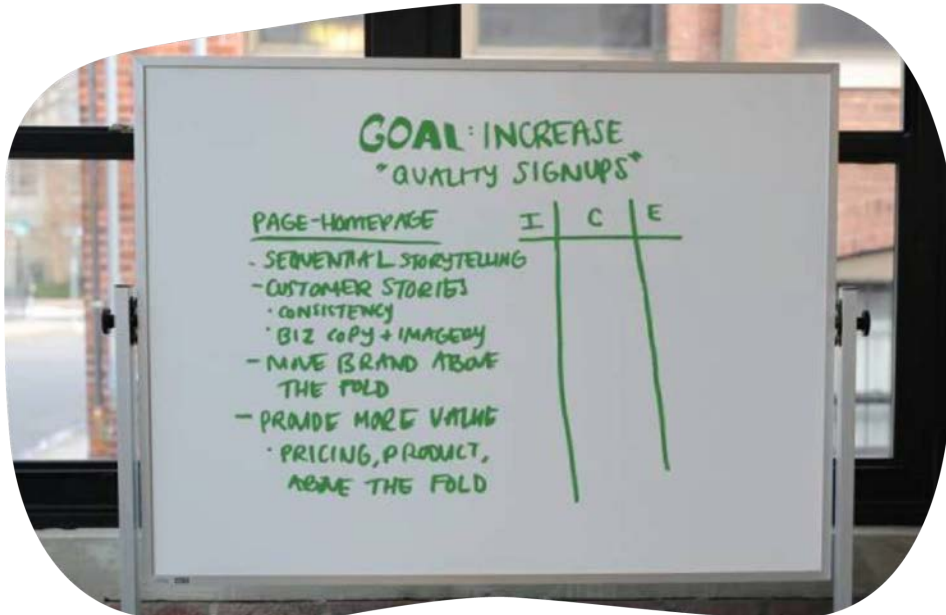 GOAL: INCREASE
"QUALITY SIGNUPS"
PAGE-HOMEPAGE I C E
- SEQUENTIAL STORYTELLING
- CUSTOMER STORIES
· CONSISTENCY
· BIZ COPY + IMAGERY
- MOVE BRAND ABOVE
THE FOLD
- PROVIDE MORE VALUE
· PRICING, PRODUCT,
ABOVE THE FOLD